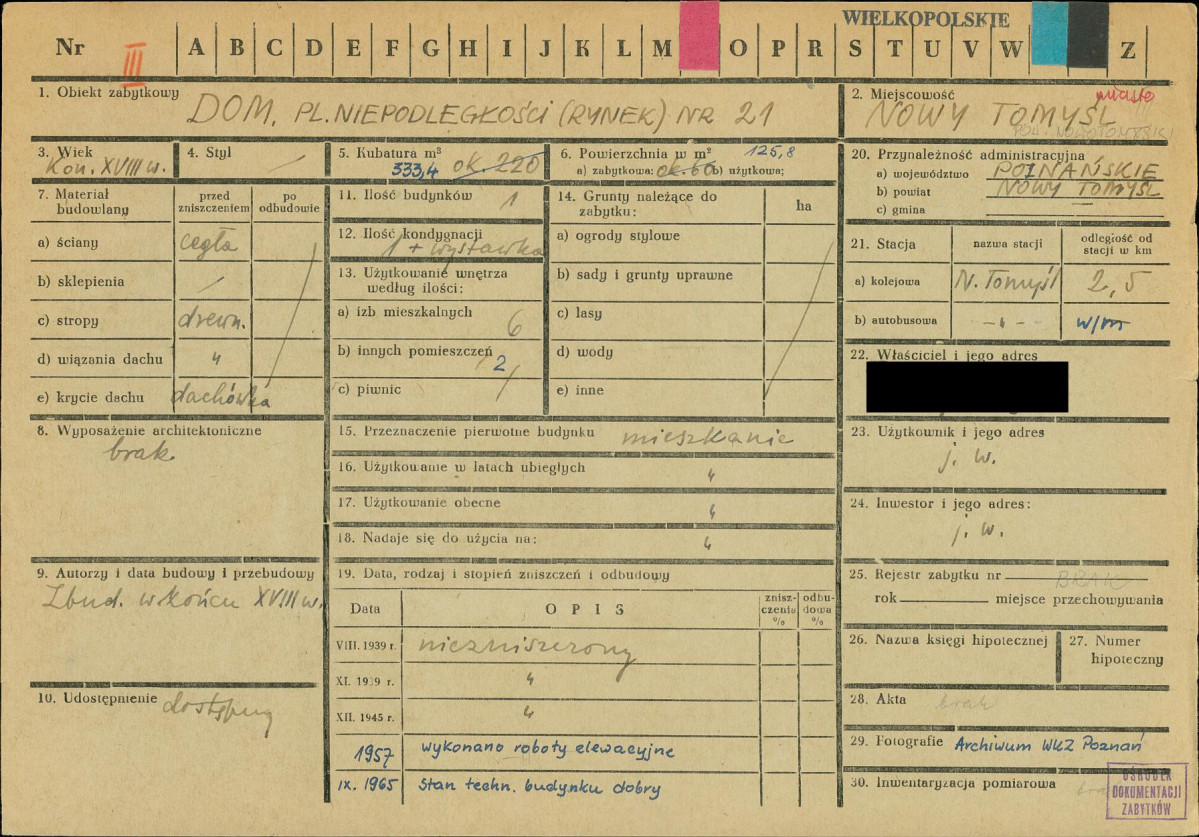 WIELKOPOLSKIE
Nr III A B C D E F G H I J K L M O P R S T U V W Z
1. Obiekt zabytkowy
DOM, PL. NIEPODLEGŁOŚCI (RYNEK) NR 21
2. Miejscowość
miasto
NOWY TOMYŚL
POW. NOWOTOMYSKI
3. Wiek
Kon. XVIII w.
4. Styl
5. Kubatura m³
333,4 ok. 220
6. Powierzchnia w m² 125,8
a) zabytkowa: ok. 60 b) użytkowa:
7. Materiał budowlany
przed zniszczeniem
po odbudowie
a) ściany cegła
b) sklepienia
c) stropy drewn.
d) wiązania dachu "
e) krycie dachu dachówka
8. Wyposażenie architektoniczne
brak
9. Autorzy i data budowy i przebudowy
Zbud. w końcu XVIII w.
10. Udostępnienie dostępny
11. Ilość budynków 1
12. Ilość kondygnacji
1 + wystawka
13. Użytkowanie wnętrza
według ilości:
a) izb mieszkalnych 6
b) innych pomieszczeń 2
c) piwnic
14. Grunty należące do
zabytku:
ha
a) ogrody stylowe
b) sady i grunty uprawne
c) lasy
d) wody
e) inne
15. Przeznaczenie pierwotne budynku mieszkanie
16. Użytkowanie w latach ubiegłych "
17. Użytkowanie obecne "
18. Nadaje się do użycia na: "
19. Data, rodzaj i stopień zniszczeń i odbudowy
Data
OPIS
znisz-
czenia
%
odbu-
dowa
%
VIII. 1939 r. niezniszczony
XI. 1939 r. "
XII. 1945 r. "
1957 wykonano roboty elewacyjne
IX. 1965 Stan techn. budynku dobry
20. Przynależność administracyjna
a) województwo POZNAŃSKIE
b) powiat NOWY TOMYŚL
c) gmina —
21. Stacja
nazwa stacji
odległość od
stacji w km
a) kolejowa N. Tomyśl 2,5
b) autobusowa - " - w/m
22. Właściciel i jego adres
23. Użytkownik i jego adres
j. w.
24. Inwestor i jego adres:
j. w.
25. Rejestr zabytku nr BRAK
rok miejsce przechowywania
26. Nazwa księgi hipotecznej
27. Numer
hipoteczny
28. Akta brak
29. Fotografie Archiwum WKZ Poznań
30. Inwentaryzacja pomiarowa
OŚRODEK
DOKUMENTACJI
ZABYTKÓW